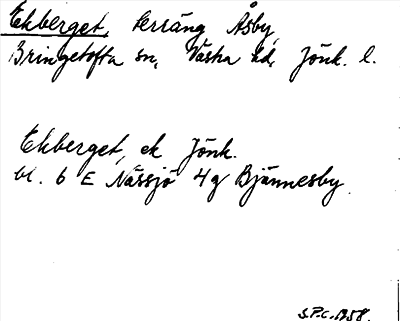 Ekberget, terräng Åsby,
Bringetofta sn, Västra hd, Jönk. l.
Ekberget, ek Jönk.
bl. 6 E Nässjö 4g Bjännesby.
S.P.C. 1958.